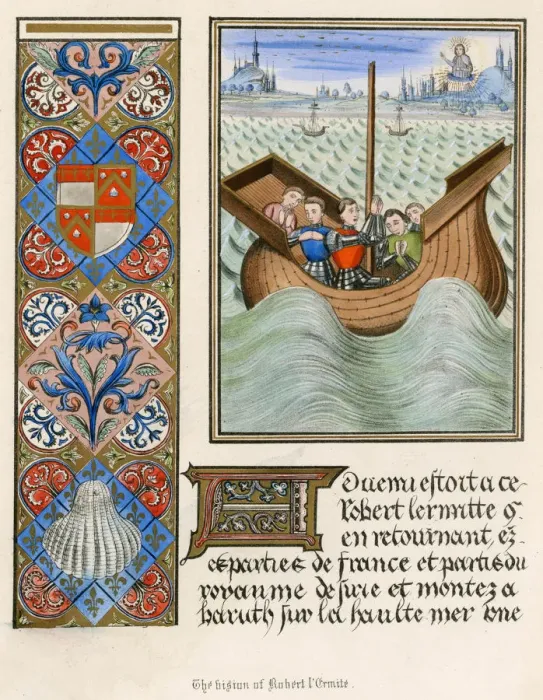 Aduenu estoit a ce
Robert lermitte q.
en retournant, ez-
es parties de france et partis du
royaume de surie et montez a
baruth sur la haulte mer vne
The vision of Robert l'Ermite.